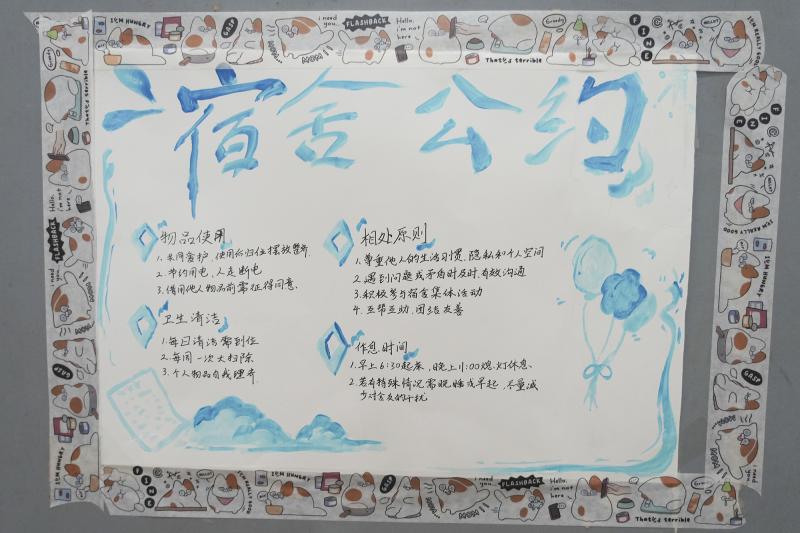 宿舍公约
物品使用
1. 共同爱护、使用后归位摆放整齐.
2. 节约用电、人走断电
3. 借用他人物品前需征得同意.
卫生清洁
1. 每日清洁需到位
2. 每周一次大扫除
3. 个人物品自我整齐
相处原则
1. 尊重他人的生活习惯、隐私和个人空间
2. 遇到问题或矛盾时及时.有效沟通
3. 积极参与宿舍集体活动
4. 互帮互助、团结友善
作息时间
1. 早上6:30起床,晚上11:00熄灯休息.
2. 若有特殊情况需晚睡或早起,尽量减
少对舍友的干扰
I'M HUNGRY
GASP
MOM
i need you.
FLASHBACK
Hello, i'm not here.
That's terrible
Greedy
FINE
HELLO!
I'M REALLY GOOD